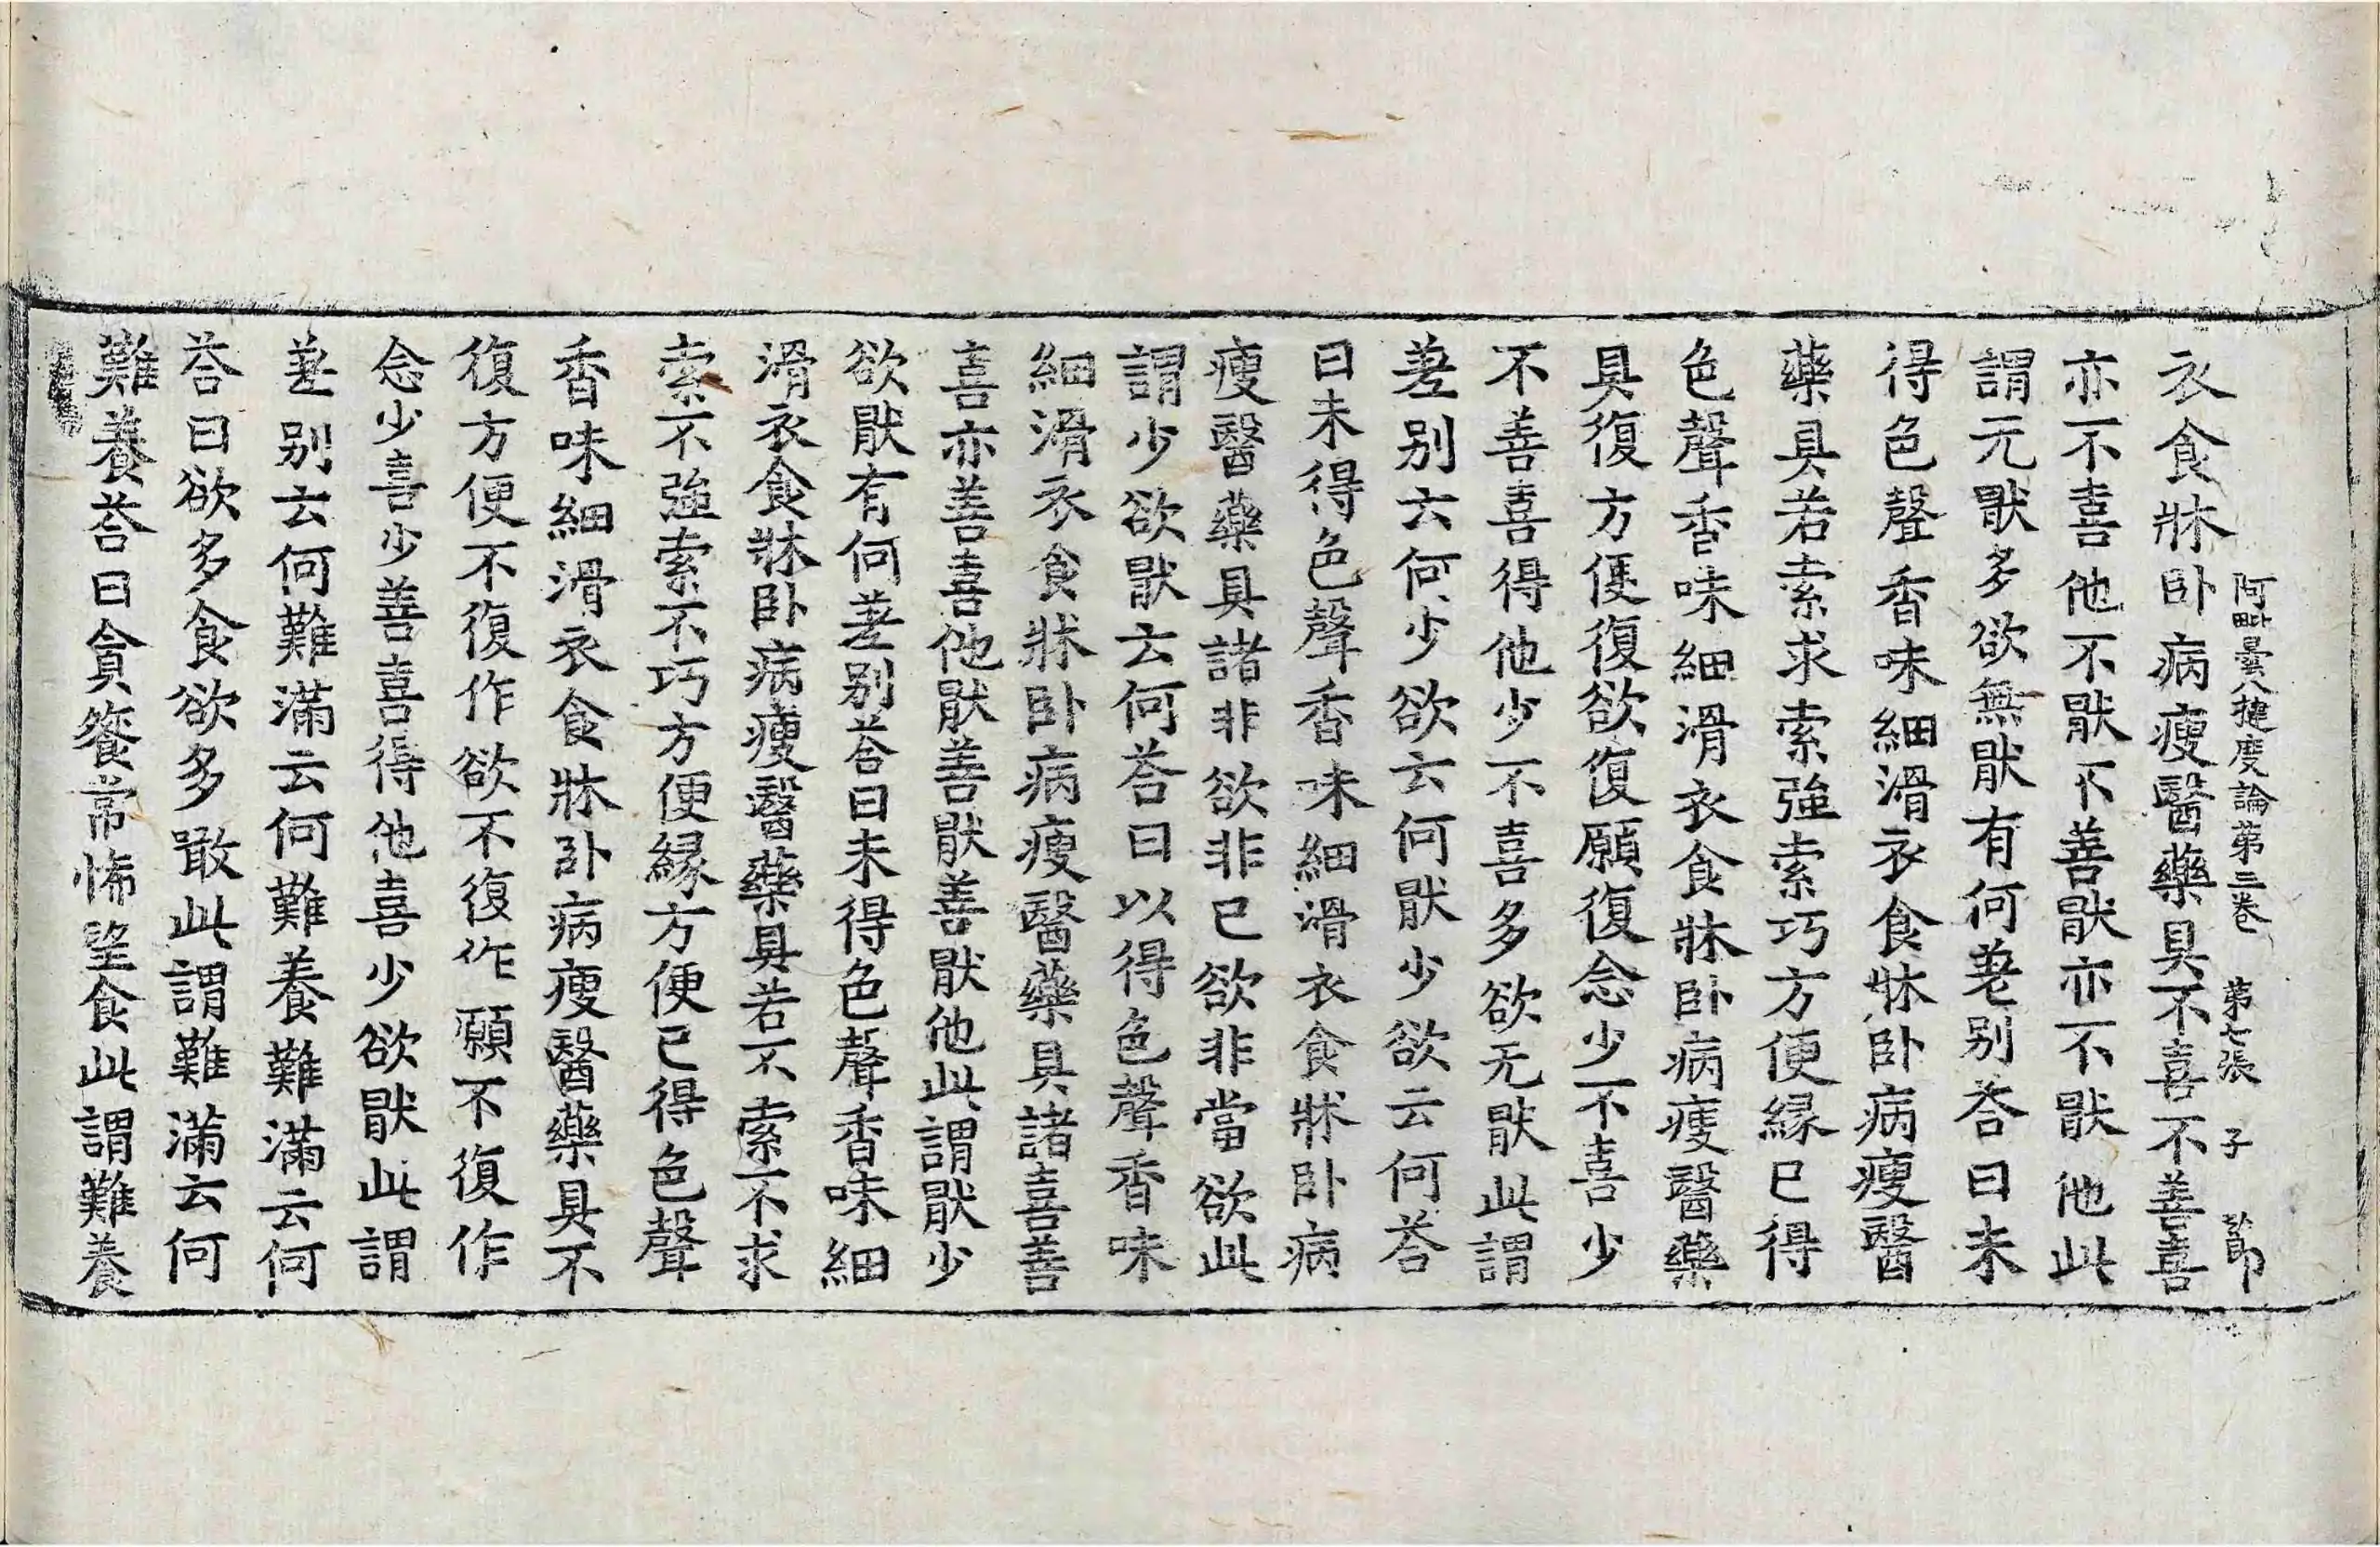 阿毗曇八揵度論第三卷 第七張 子
衣食牀卧病瘦醫藥具不喜不善喜
亦不喜他不猒不善猒亦不猒他此
謂无猒多欲無猒有何差别荅曰未
得色聲香味細滑衣食牀卧病瘦醫
藥具若索求索強索巧方便縁已得
色聲香味細滑衣食牀卧病瘦醫藥
具復方便復欲復願復念少不喜少
不善喜得他少不喜多欲无猒此謂
差别云何少欲云何猒少欲云何荅
曰未得色聲香味細滑衣食牀卧病
瘦醫藥具諸非欲非已欲非當欲此
謂少欲猒云何荅曰以得色聲香味
細滑衣食牀卧病瘦醫藥具諸喜善
喜亦善喜他猒善猒善猒他此謂猒少
欲猒有何差别荅曰未得色聲香味細
滑衣食牀卧病瘦醫藥具若不索不求
索不強索不巧方便縁方便已得色聲
香味細滑衣食牀卧病瘦醫藥具不
復方便不復作欲不復作願不復作
念少喜少善喜得他喜少欲猒此謂
差别云何難滿云何難養難滿云何
荅曰欲多食欲多噉此謂難滿云何
難養荅曰貪餮常悕望食此謂難養